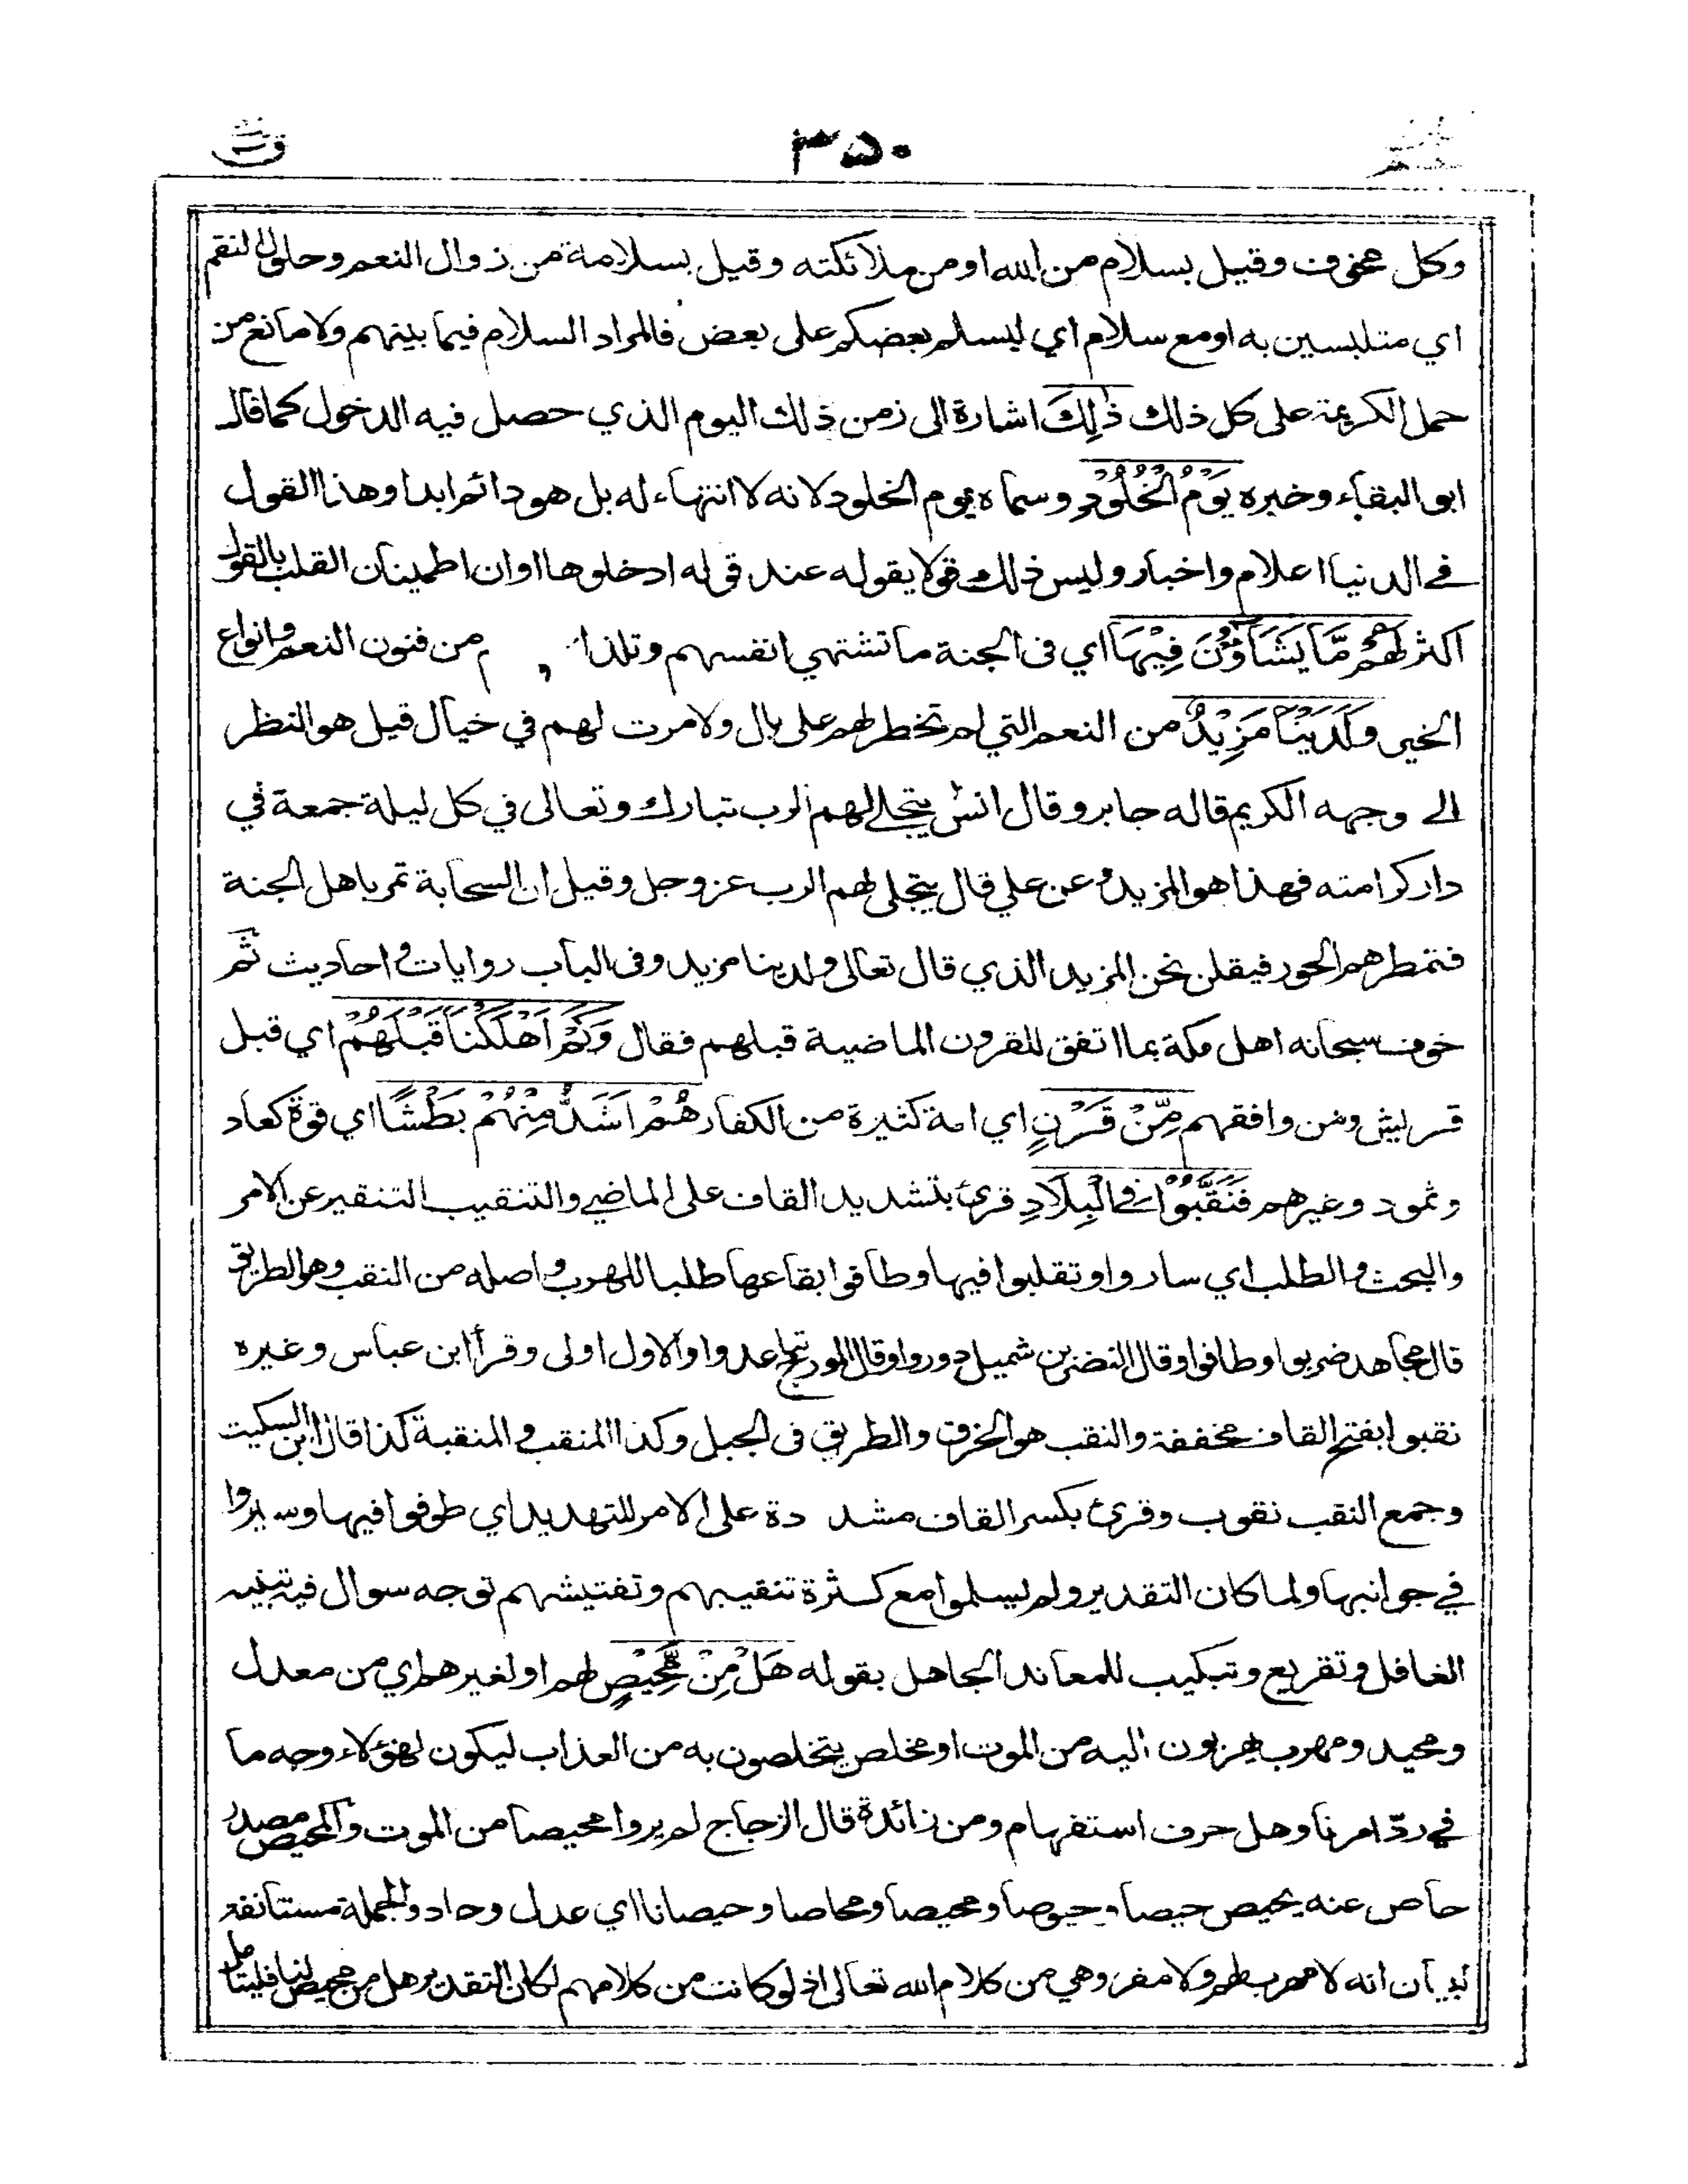 ق
٣٥٠
وكل مخوف وقيل بسلام من الله او من ملائكته وقيل بسلامة من زوال النعم وحلول النقم
اي متلبسين به او مع سلام اي ليسلم بعضكم على بعض فالمراد السلام فيما بينهم ولا مانع من
حمل الكريمة على كل ذلك ذٰلِكَ اشارة الى زمن ذلك اليوم الذي حصل فيه الدخول كما قال
ابو البقاء وخبره يَوْمُ الْخُلُوْدِ وسماه يوم الخلود لانه لا انتهاء له بل هو دائم ابدا وهذا القول
في الدنيا اعلام واخبار وليس ذلك قولا يقوله عند قوله ادخلوها او ان اطمينان القلب بالقول
اكثر لَهُمْ مَّا يَشَآؤُنَ فِيْهَا اي فى الجنة ما تشتهي انفسهم وتلذ من فنون النعم وانواع
الخير وَلَدَيْنَا مَزِيْدٌ من النعم التي لم تخطر لهم على بال ولا مرت لهم في خيال قيل هو النظر
الى وجهه الكريم قاله جابر وقال انس يتجلى لهم الرب تبارك وتعالى في كل ليلة جمعة في
دار كرامته فهذا هو المزيد وعن علي قال يتجلى لهم الرب عز وجل وقيل ان السحابة تمر باهل الجنة
فتمطرهم الحور فيقلن نحن المزيد الذي قال تعالى ولدينا مزيد وفى الباب روايات واحاديث ثم
خوف سبحانه اهل مكة بما اتفق للقرون الماضية قبلهم فقال وَكَمْ اَهْلَكْنَا قَبْلَهُمْ اي قبل
قريش ومن وافقهم مِّنْ قَرْنٍ اي امة كثيرة من الكفار هُمْ اَشَدُّ مِنْهُمْ بَطْشًا اي قوة كعاد
وثمود وغيرهم فَنَقَّبُوْا فِي الْبِلَادِ قرئ بتشديد القاف على الماضي والتنقيب التنقير عن الامر
والبحث والطلب اي ساروا وتقلبوا فيها وطافوا بقاعها طلبا للهرب واصله من النقب وهو الطريق
قال مجاهد ضربوا وطافوا وقال النضر بن شميل دوروا وقال المورج تباعدوا والاول اولى وقرأ ابن عباس وغيره
نقبوا بفتح القاف مخففة والنقب هو الخرق والطريق فى الجبل وكذا المنقب والمنقبة كذا قال ابن السكيت
وجمع النقب نقوب وقرئ بكسر القاف مشددة على الامر للتهديد اي طوفوا فيها وسيروا
في جوانبها ولما كان التقدير ولم يسلموا مع كثرة تنقيبهم وتفتيشهم توجه سوال فيه تنبيه
الغافل وتقريع وتبكيب للمعاند الجاهل بقوله هَلْ مِنْ مَّحِيْصٍ لهم او لغيرهم اي من معدل
ومحيد ومهرب يهربون اليه من الموت او مخلص يتخلصون به من العذاب ليكون لهؤلاء وجه ما
في ردّ امرنا وهل حرف استفهام ومن زائدة قال الزجاج لم يروا محيصا من الموت والمحيص مصدر
حاص عنه يحيص حيصا وحيوصا ومحيصا ومحاصا وحيصانا اي عدل وحاد والجملة مستانفة
لبيان انه لا مهرب لهم ولا مفر وهي من كلام الله تعالى اذ لو كانت من كلامهم لكان التقدير هل من محيص لنا فليتامل